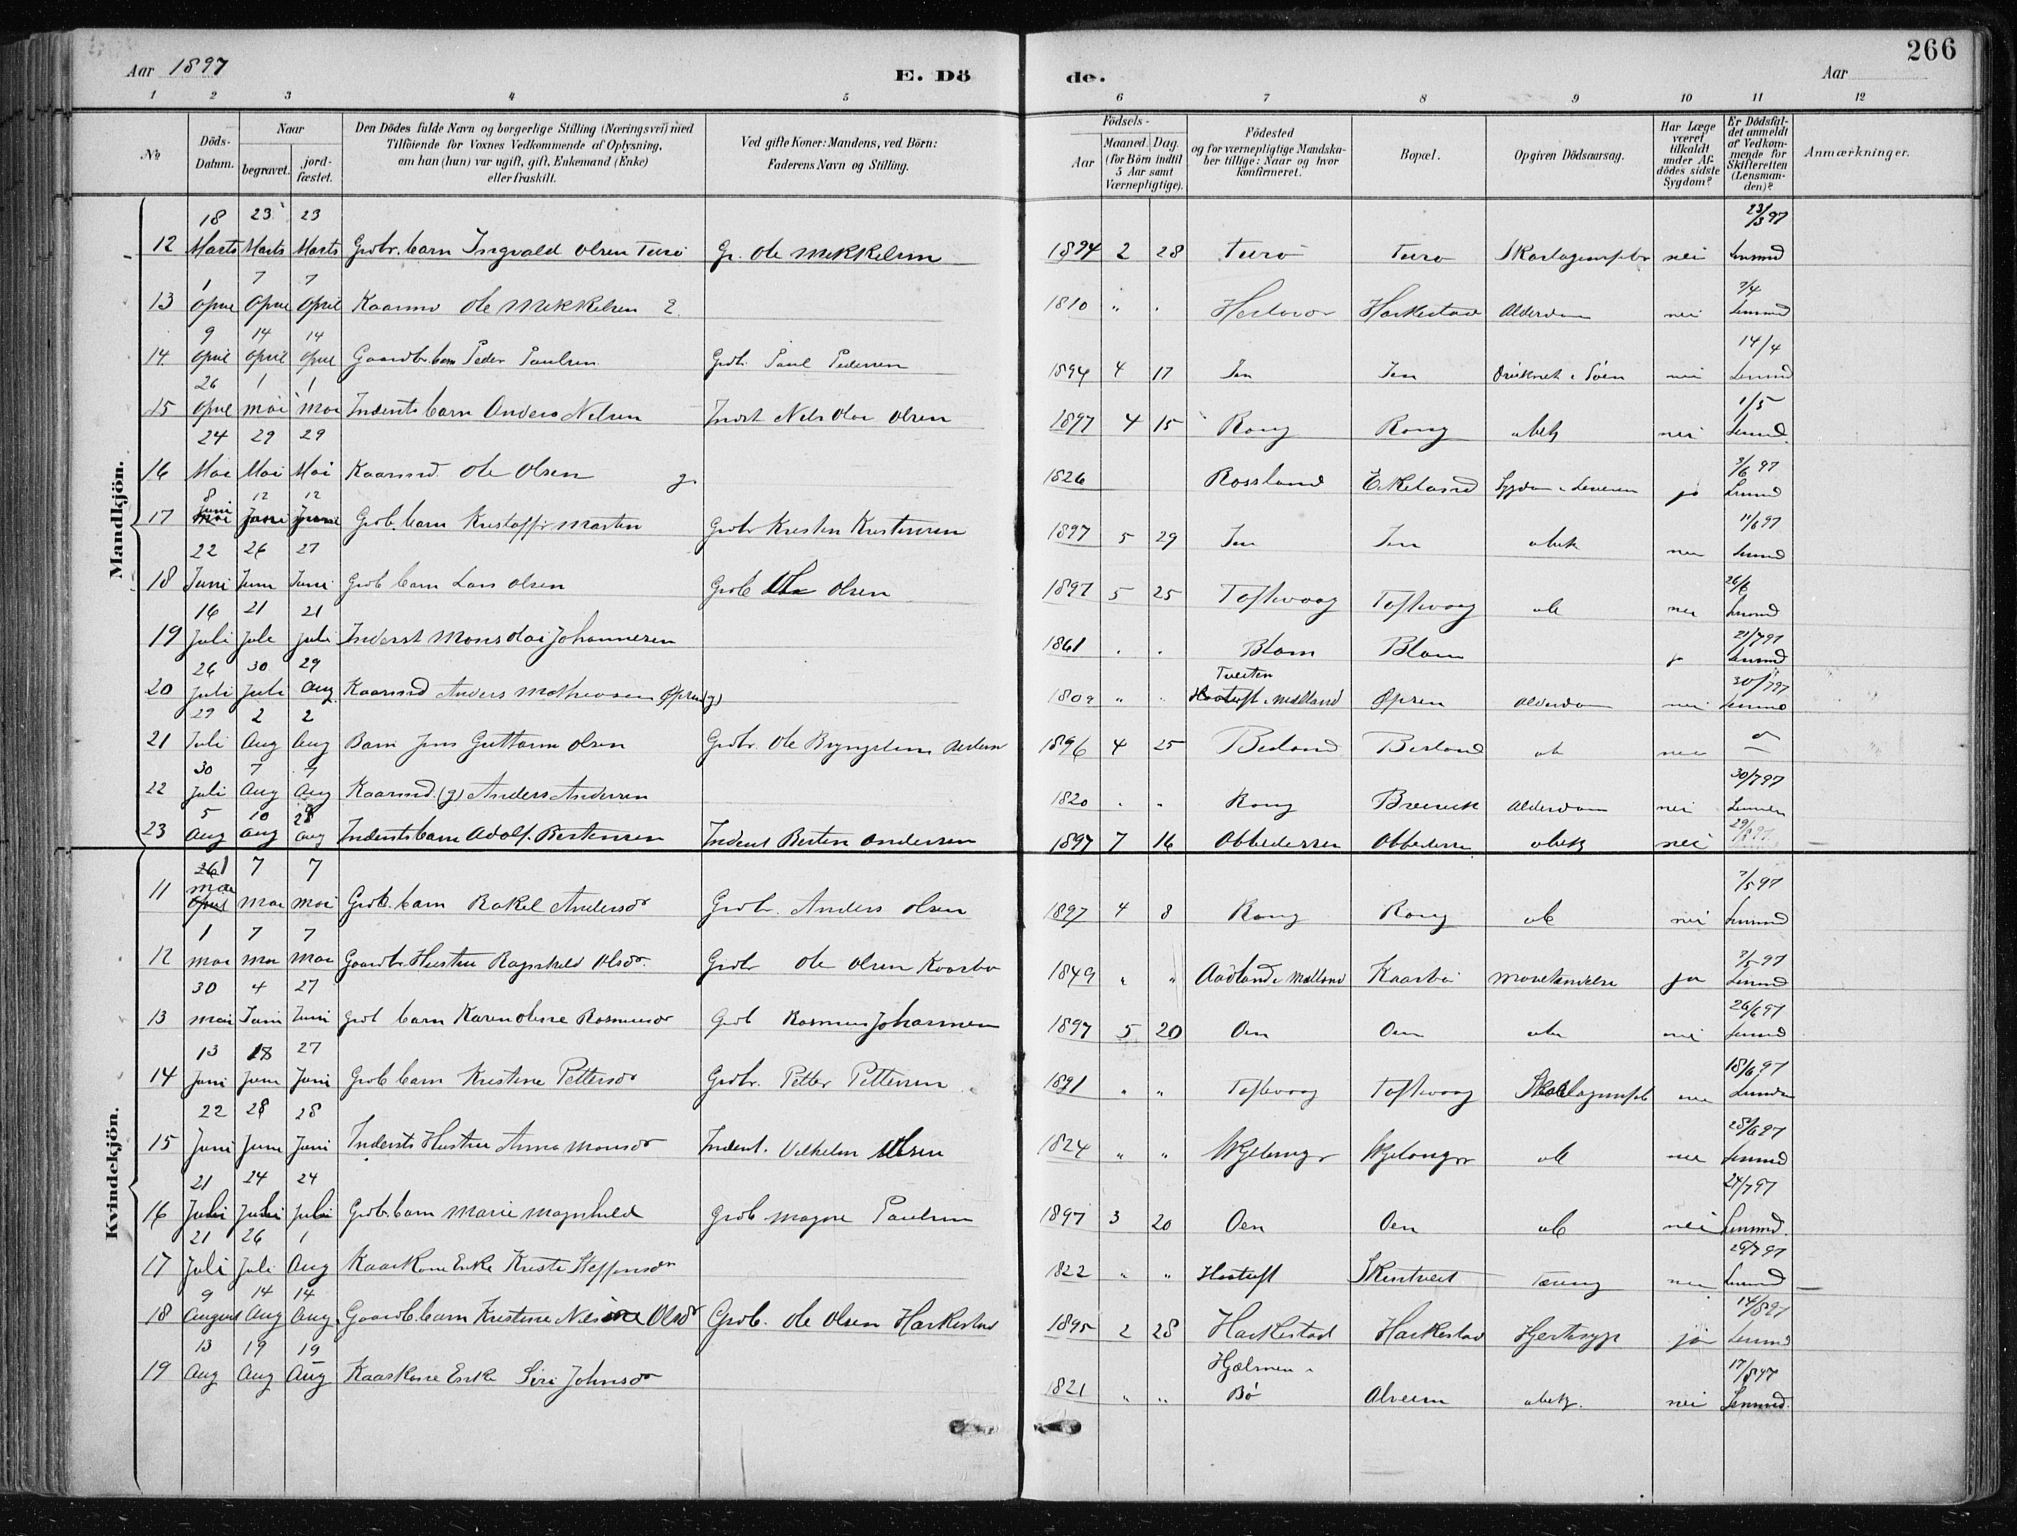 Aar 1897 E. Dö de. Aar 266
1 2 3 4 5 6 7 8 9 10 11 12
No Döds-Datum. Naar begravet. jord-fæstet. Den Dödes fulde Navn og borgerlige Stilling (Næringsvei) med Tilföiende for Voxnes Vedkommende af Oplysning, om han (hun) var ugift, gift, Enkemand (Enke) eller fraskilt. Ved gifte Koner: Mandens, ved Börn: Faderens Navn og Stilling. Födsels- Aar Maaned. Dag. (for Börn indtil 5 Aar samt Værnepligtige). Födested og for værnepligtige Mandskaber tillige: Naar og hvor konfirmeret. Bopæl. Opgiven Dödsaarsag. Har Læge været tilkaldt under Afdödes sidste Sygdom? Er Dödsfaldet anmeldt af Vedkommende for Skifteretten (Lensmanden)? Anmærkninger.
Mandkjön.
12 18 Marts 23 Marts 23 Marts Grdbr. barn Ingvald Olsen Turö Gr. Ole Mikkelsen 1894 2 28 Turö Turö nei 23/3 97 Lensmd
13 1 April 7 April 7 April Kaarmd Ole Mikkelsen 1810 " . Harkestad Alderdom nei 7/4 Lensmd
14. 9 April 14 April 14 April Gaardbr. barn Peder Paulsen Grdb. Paul Pedersen 1894 4 17 nei 14/4 Lensmd
15 26 April 1 Mai 1 Mai Inderts barn Anders Nilsen Indst Nils Olai Olsen 1897 4 15 Rong Rong ubek nei 1/5 Lensmd.
16 24 Mai 29 Mai 29 Mai Kaarmd. Ole Olsen g. 1826 Rossland Eikeland Sygdom i Leveren ja 3/6 97 Lensmd
17 8 Juni 12 Juni 12 Juni Grdb. barn Kristoffer Martin Grdbr Kristen Kristensen 1897 5 29 ubek nei 11/6 97 Lensmd
18 22 Juni 26 Juni 27 Juni Grdb barn Lars Olsen Grdb Ole Olsen 1897 5 25 Toftevaag Toftevaag ub nei 26/6 Lensmd
19 16 Juli 21 Juli 21 Juli Inderst Mons Olai Johannesen 1861 . . Blom Blom ja 21/7 97 Lensmd
20 26 Juli 30 Juli 29 Aug Kaarmd Anders Mathiassen Øpsen (g) 1809 " . Tveiten Hostuft i Mælland Øpsen Alderdom nei 30/7 97 Lensmd
21 29 Juli 2 Aug 2 Aug Barn Jens Guttorm Olsen Grdbr. Ole Bryngelsen 1896 4 25 Berland Berland ub nei
22 30 Juli 7 Aug 7 Aug Kaarmd. (g) Anders Andersen 1820 . " Rong Alderdom nei 30/7 97
23 5 Aug 10 Aug 28 Aug Inderts barn Adolf Bertensen Inderst Berten Andersen 1897 7 16 ubek nei 29/8 97
Kvindekjön.
11 1 Mai 7 Mai 7 Mai Grdb. barn Rakel Andersdr Grdbr. Anders Olsen 1897 4 8 Rong Rong ub nei 7/5 97 Lensmd
12 1 Mai 7 Mai 7 Mai Gaardbr Hustru Ragnhild Olsdr. Grdbr Ole Olsen Kaarbø 1849 " " Aadland i Mælland Kaarbø ja 7/5 97 Lensmd
13 30 Mai 4 Juni 27 Juni Grdb barn Karen Oline Rasmusdr Grdb Rasmus Johannesen 1897 5 20 Oen Oen ub nei 26/6 97 Lensmd
14 13 Juni 18 Juni 27 Juni Grdb barn Kristine Pettersdr Grdbr. Petter Pettersen 1891 " " Toftevaag Toftevaag nei 18/6 97
15 22 Juni 28 Juni 28 Juni Inderts Hustru Anna Monsdr Inderst. Vilhelm Olsen 1824 " " ub nei 28/6 97 Lensmd
16 21 Juli 24 Juli 24 Juli Grdb. barn Marie Magnhild Grdb Magne Paulsen 1897 3 20 Oen Oen ub nei 24/7 97 Lensmd.
17 21 Juli 26 Juli 1 Aug Kaarkone Enke Kristi Steffensdr 1822 " " Hostuft Skintveit Tæring nei 26/7 97 Lensmd
18 9 August 14 Aug 14 Aug Gaardb. barn Kristine Nilsine Olsdr Grdb. Ole Olsen Harkestad 1895 2 28 Harkestad Harkestad Hjertesyge ja 14/8 97 Lensmd
19 13 Aug 19 Aug 19 Aug Kaarkone Enke Siri Johnsdr 1821 " " Hjelmen i Bø Alveim ubek. nei 17/8 97 Lensmd.